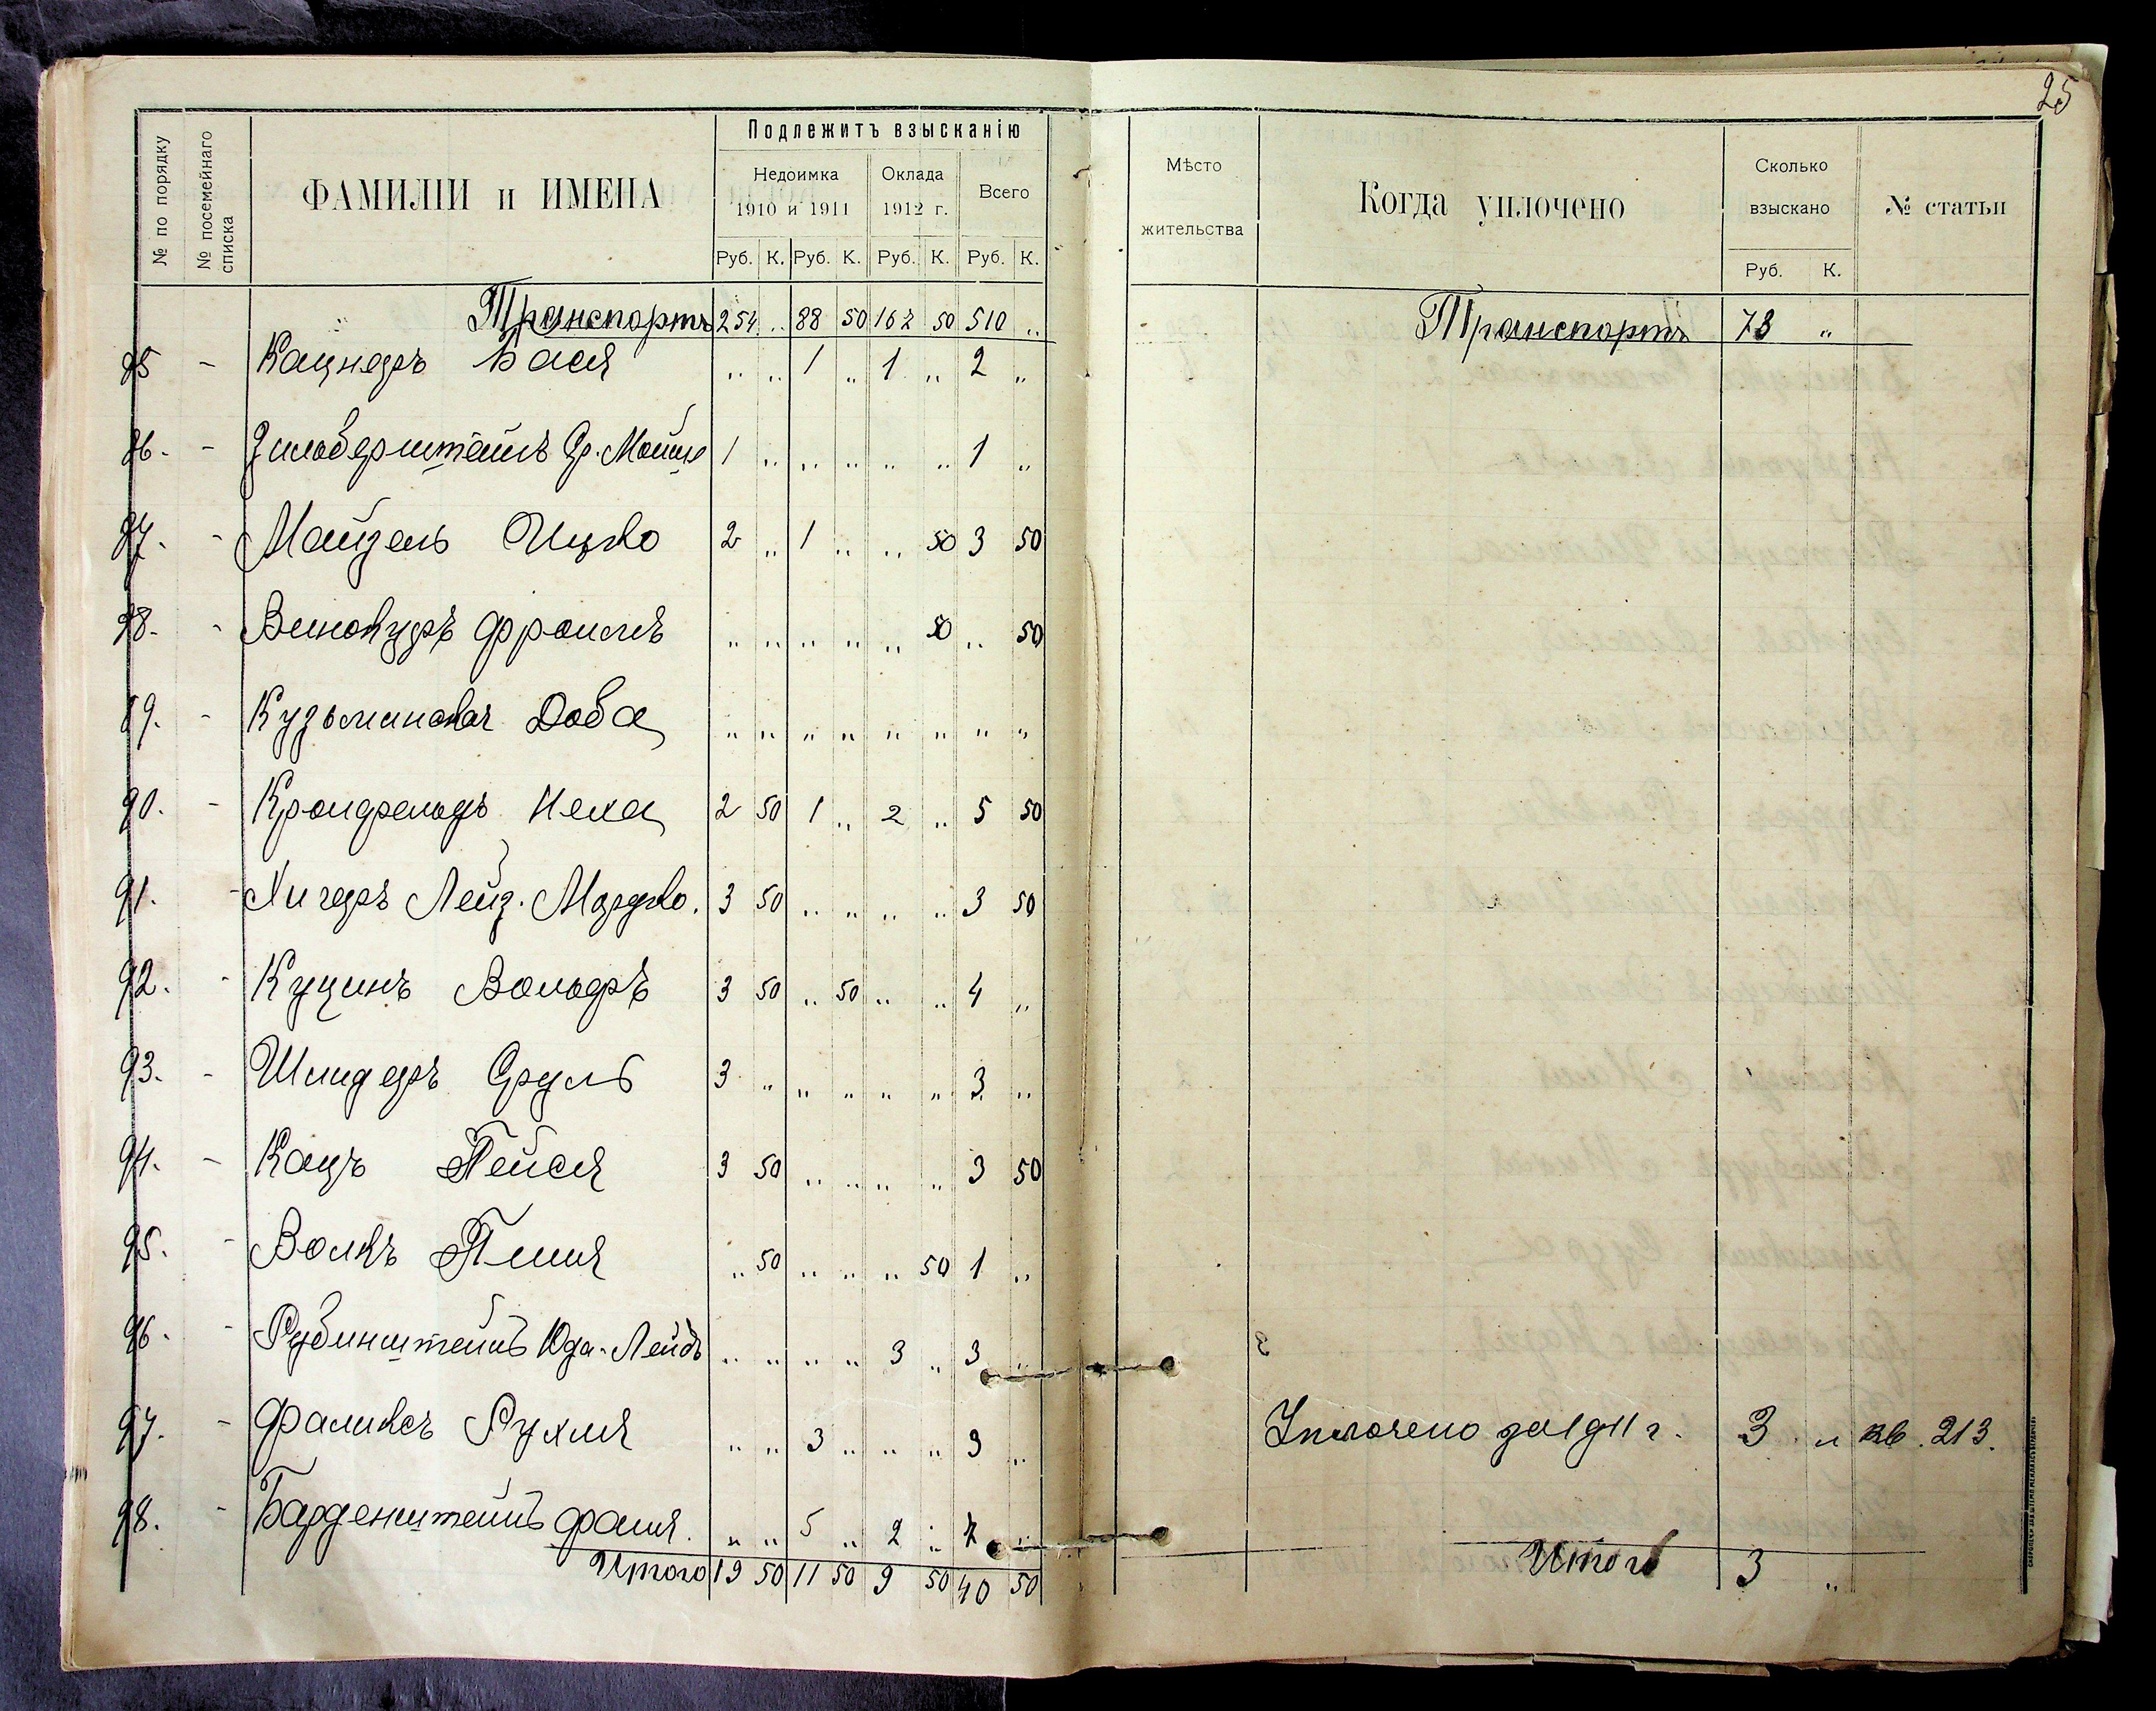 25
№ по порядку
№ посемейнаго списка
ФАМИЛІИ и ИМЕНА
Подлежитъ взысканію
Недоимка 1910 и 1911
Оклада 1912 г.
Всего
Руб. К. Руб. К. Руб. К. Руб. К.
Мѣсто жительства
Когда уплочено
Сколько взыскано
Руб. К.
№ статьи
Транспортъ 254 „ 88 50 162 50 510 „
Транспортъ 73 „
85 - Кацнеръ Бася „ „ 1 „ 1 „ 2 „
86. - Зильберштейнъ Ср. Мойше 1 „ „ „ „ „ 1 „
87. - Майзель Ицко 2 „ 1 „ „ 50 3 50
88. - Винокуръ Фроимъ „ „ „ „ „ 50 „ 50
89. - Кузьминовая Доба „ „ „ „ „ „ „ „
90. - Кронфельдъ Неха 2 50 1 „ 2 „ 5 50
91. - Хигеръ Лейз. Мордко. 3 50 „ „ „ „ 3 50
92. - Куцинъ Вольфъ 3 50 „ 50 „ „ 4 „
93. - Шнидеръ Сруль 3 „ „ „ „ „ 3 „
94. - Кацъ Пейся 3 50 „ „ „ „ 3 50
95. - Волкъ Пиня „ 50 „ „ „ 50 1 „
96. - Рубинштейнъ Юда-Лейбъ „ „ „ „ 3 „ 3 „
97. - Фаликсъ Рухля „ „ 3 „ „ „ 3 „ Уплочено за 1911 г. 3 „ кв. 213.
98. - Барденштейнъ Фаня. „ „ 5 „ 2 „ 7 „
Итого 19 50 11 50 9 50 40 50
Итого 3 „